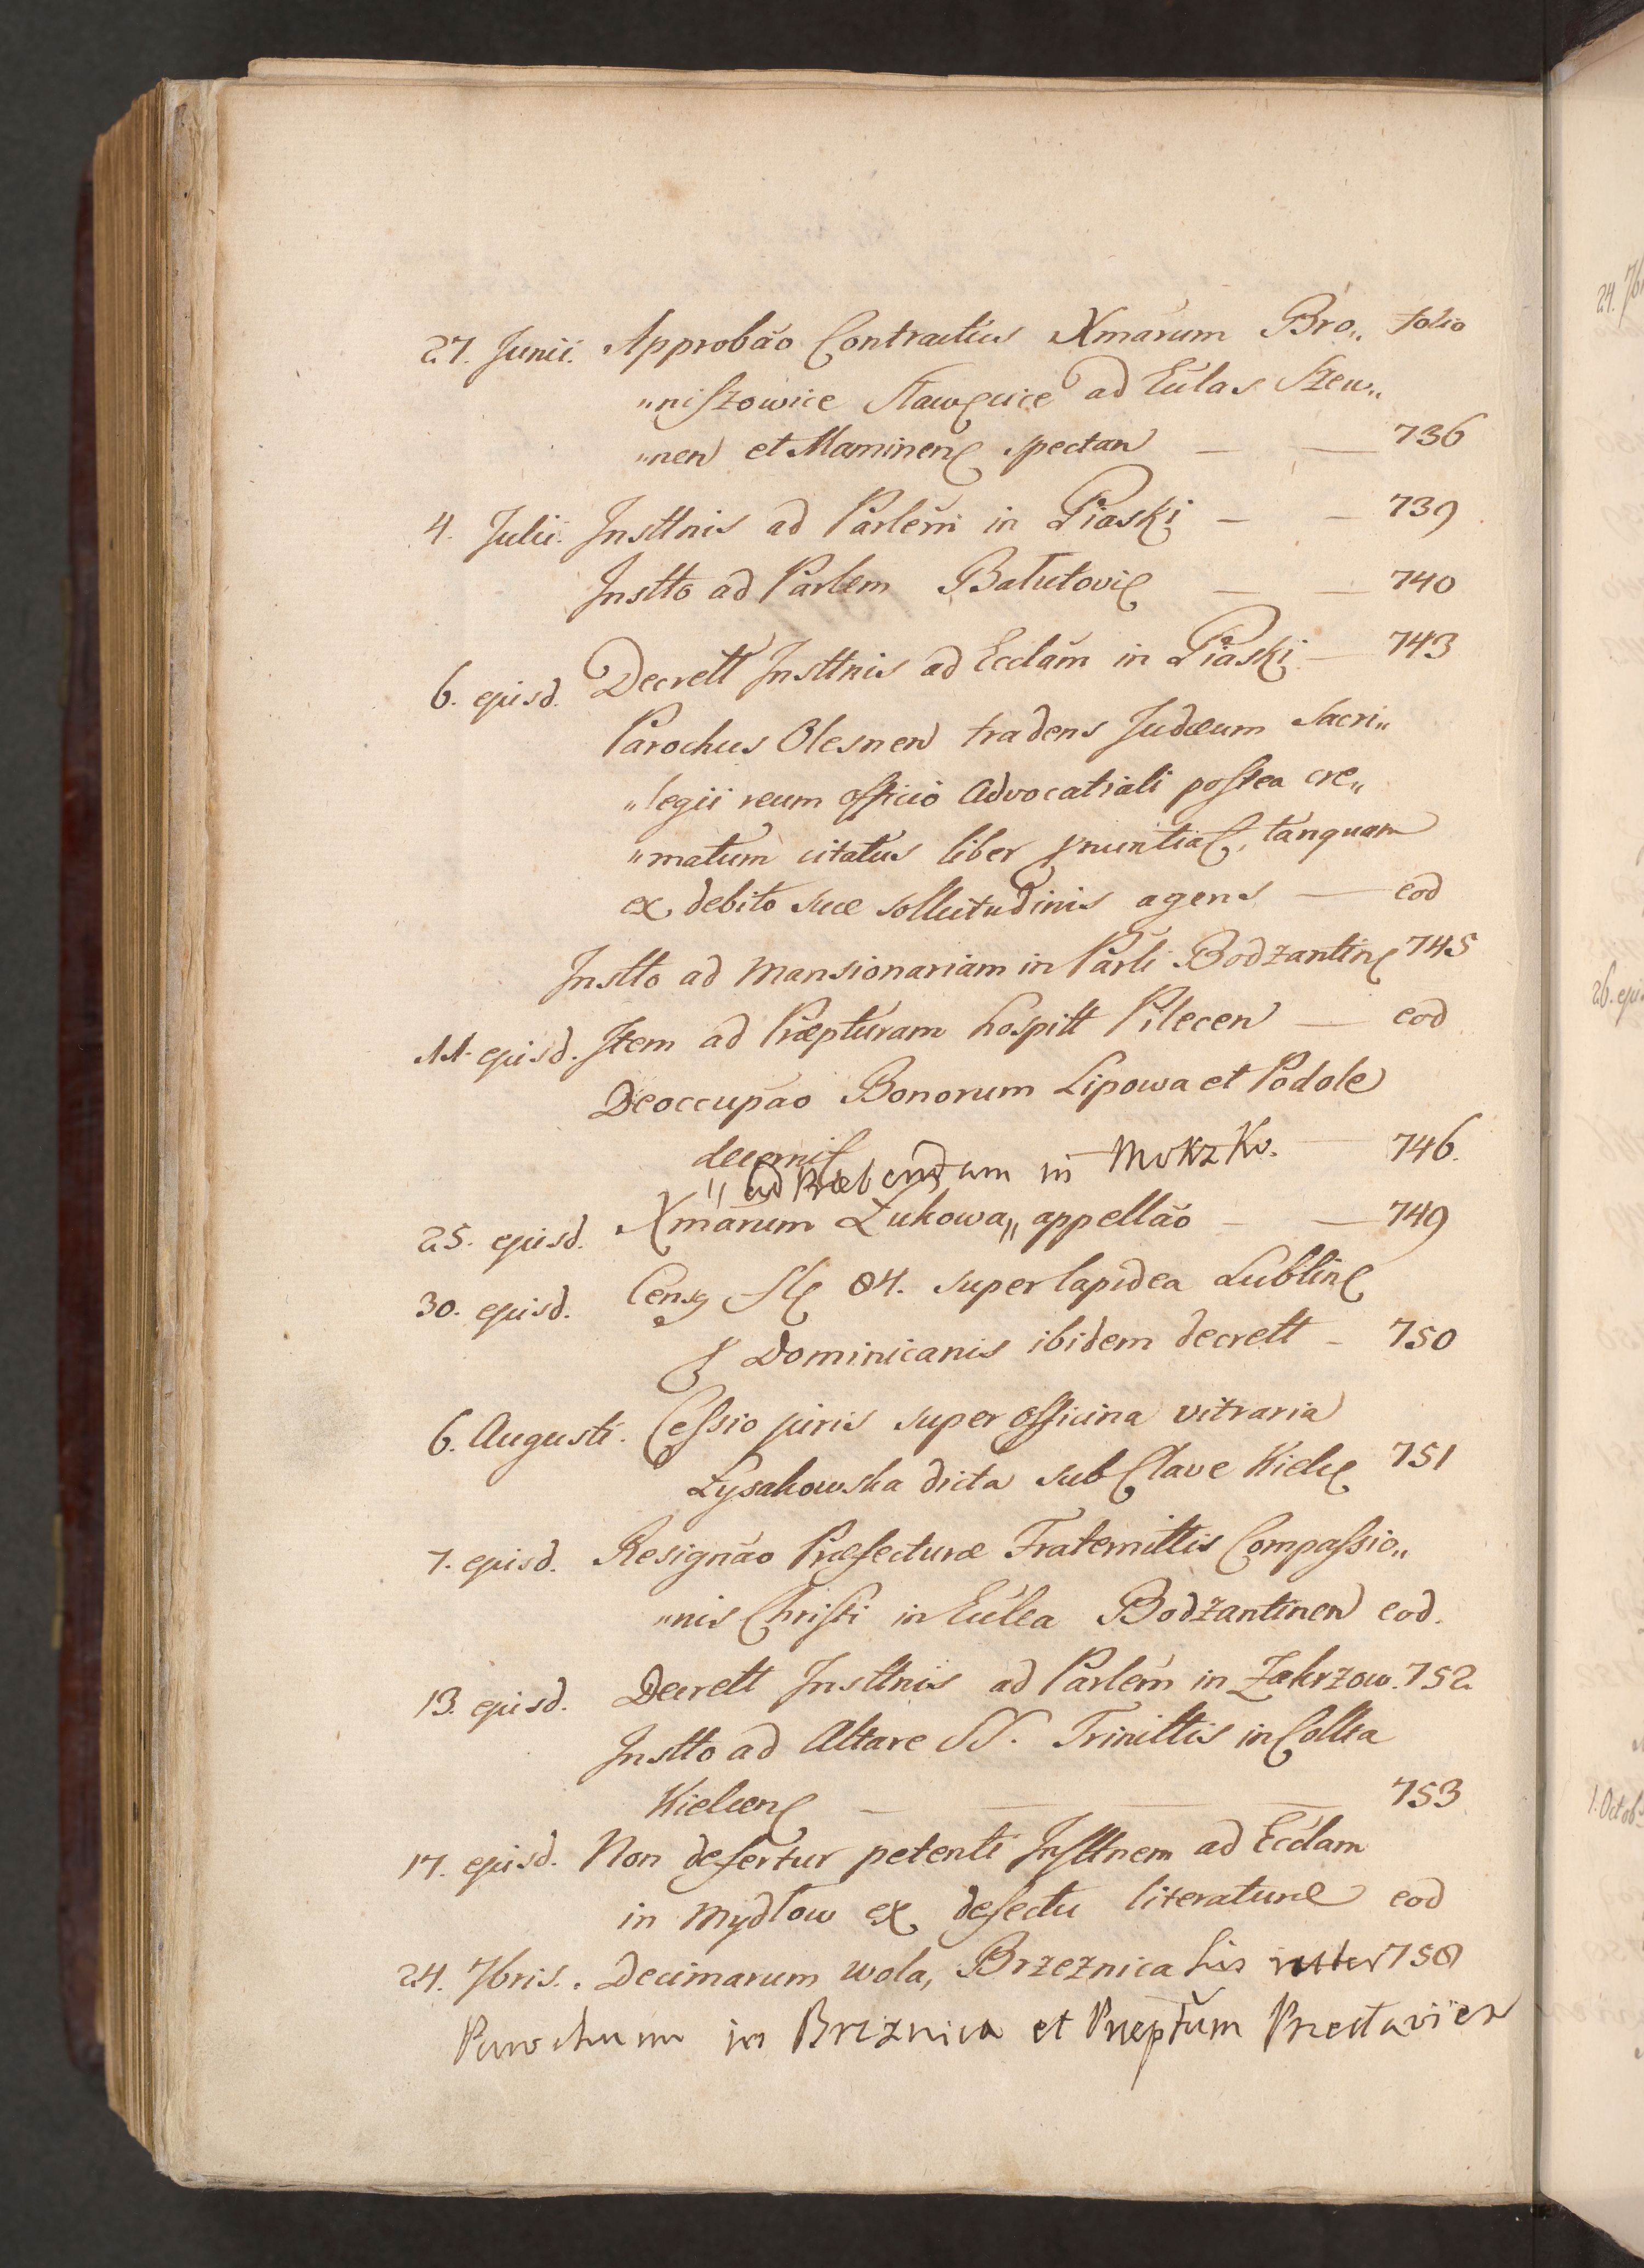 27. Junii. Approbão Contractus Xmãrum Bro„ folio
„niszowice Sławęcice ad Eccłas Szew„
„nen et Maminen spectan — — 736
4. Julii. Insttnis ad Parlem in Piaski — — 739
Instto ad Parlem Bałutovi — — 740
6. ejusd. Decrett Insttnis ad Ecclãm in Piaski — 743
Parochus Olesnen tradens Judæum Sacri„
„legii reum officio Advocatiali postea cre„
„matum citatus liber pnuntia, tanquam
ex debito suæ sollicitudinis agens — eod
Instto ad Mansionariam in Parli Bodzantin 745
11. ejusd. Item ad Præpturam hospitt Pilecen — eod
Deoccupão Bonorum Lipowa et Podole
decernis — 746.
„ ad Præbendam in Mokzko.
25. ejusd. Xmãrum Łukowa„ appellão — — 749
30. ejusd. Census 84. super lapidea Lublin
p Dominicanis ibidem decrett — 750
6. Augusti. Cessio juris super officina vitraria
Łysakowska dicta sub Clave Kielc 751
7. ejusd. Resignão Præfecturæ Fraternittis Compassio„
„nis Christi in Ecclea Bodzantinen eod.
13. ejusd. Decrett Insttnis ad Parlem in Zakrzow. 752.
Instto ad Altare SS. Trinittis in Collta
Kielcen — — — 753
17. ejusd. Non defertur petenti Insttnem ad Ecclam
in Mydłow ex defectu literaturæ eod
24. 7bris.. Decimarum Wola, Brzeznica lis inter 758
Parochum in Brzeznica et Præptum